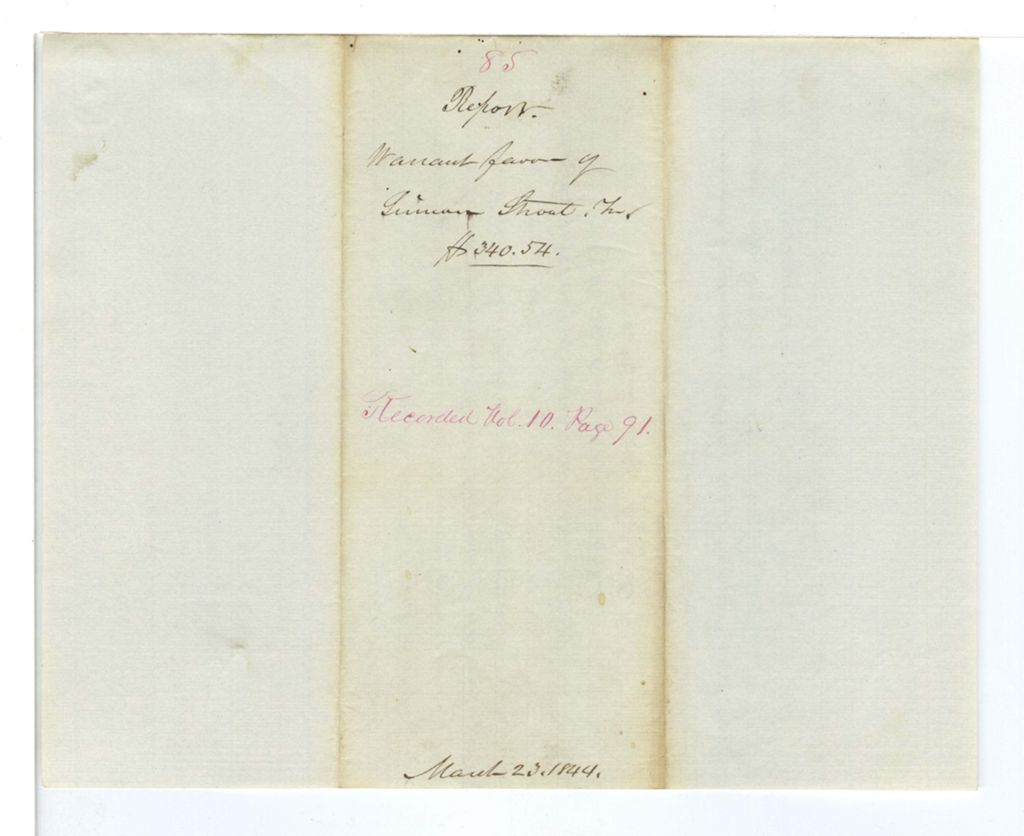 85
Report.
Warrant favor of
$340.54.
Recorded Vol. 10. Page 91.
March 23. 1844.